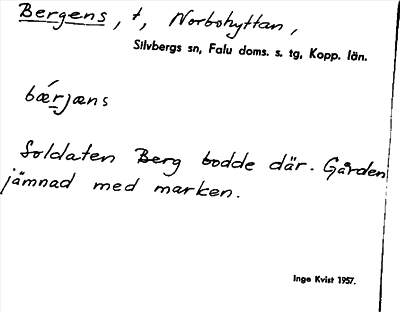 Bergens, †, Norbohyttan,
Silvbergs sn, Falu doms. s. tg, Kopp. län.
bǽrjæns
Soldaten Berg bodde där. Gården
jämnad med marken.
Inge Kvist 1957.